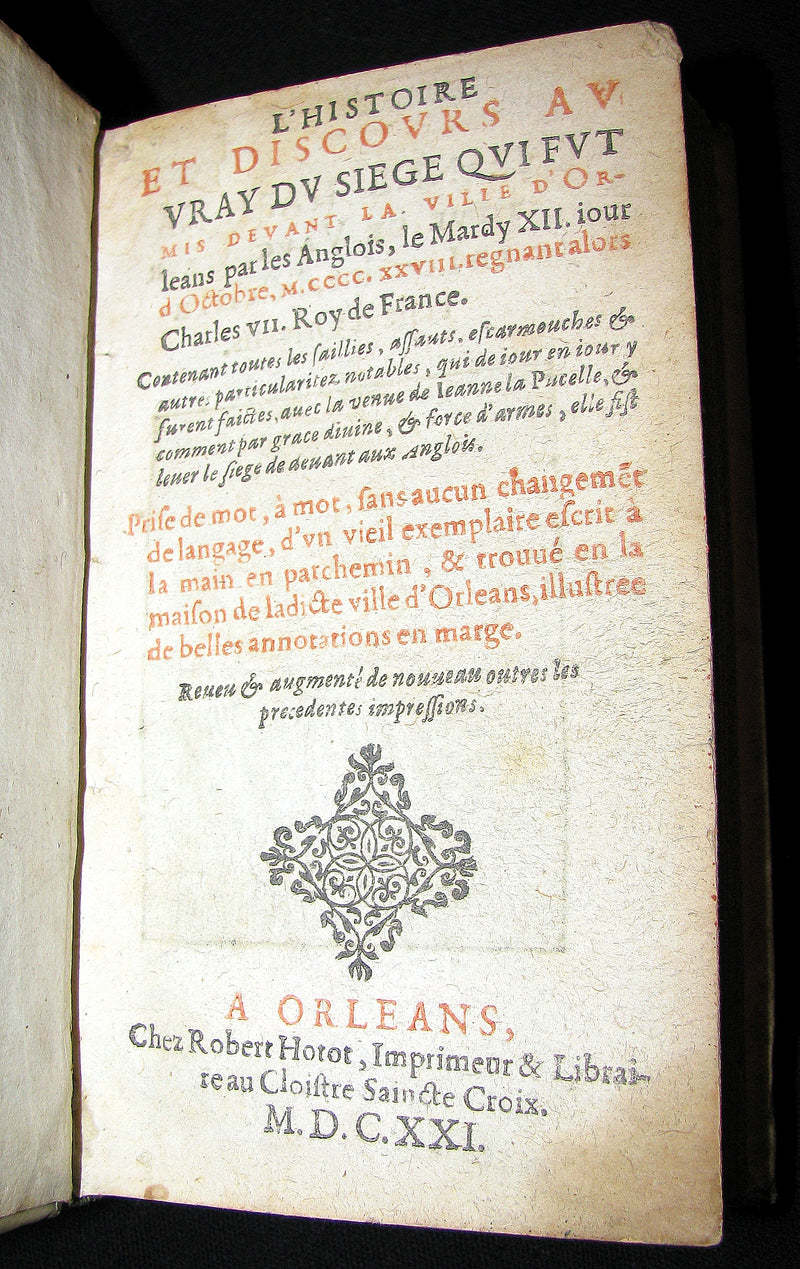 L'HISTOIRE
ET DISCOVRS AV
VRAY DV SIEGE QVI FVT
MIS DEVANT LA VILLE D'OR-
leans par les Anglois, le Mardy XII. iour
d'Octobre, M. CCCC. XXVIII. regnant alors
Charles VII. Roy de France.
Contenant toutes les saillies, assauts, escarmouches &
autres particularitez notables, qui de iour en iour y
furent faictes, auec la venue de Ieanne la Pucelle, &
comment par grace diuine, & force d'armes, elle fist
leuer le siege de deuant aux Anglois.
Prise de mot, à mot, sans aucun changemēt
de langage, d'vn vieil exemplaire escrit à
la main en parchemin, & trouué en la
maison de ladicte ville d'Orleans, illustree
de belles annotations en marge.
Reueu & augmenté de nouueau outres les
precedentes impressions.
A ORLEANS,
Chez Robert Hotot, Imprimeur & Librai-
re au Cloistre Saincte Croix.
M. D. C. XXI.